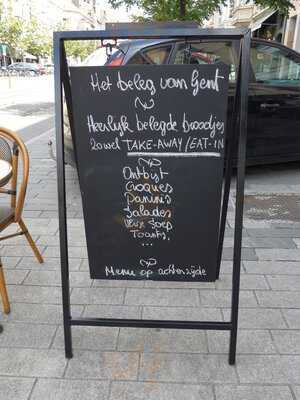 Het beleg van Gent
Heerlijk belegde broodjes
zowel TAKE-AWAY/EAT-IN
Ontbijt
Croques
Panini's
Salades
Soep
Toasts,
...
Menu op achterzijde